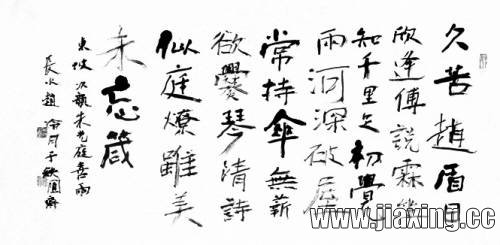 久苦趙盾日
欣逢傅說霖坐
知千里足初覺
兩河深破屋
常持傘無薪
欲爨琴清詩
似庭燎雖美
未忘箴
東坡次韻朱光庭喜雨
長水趙冷月于缺圓齋
www.jiaxing.cc